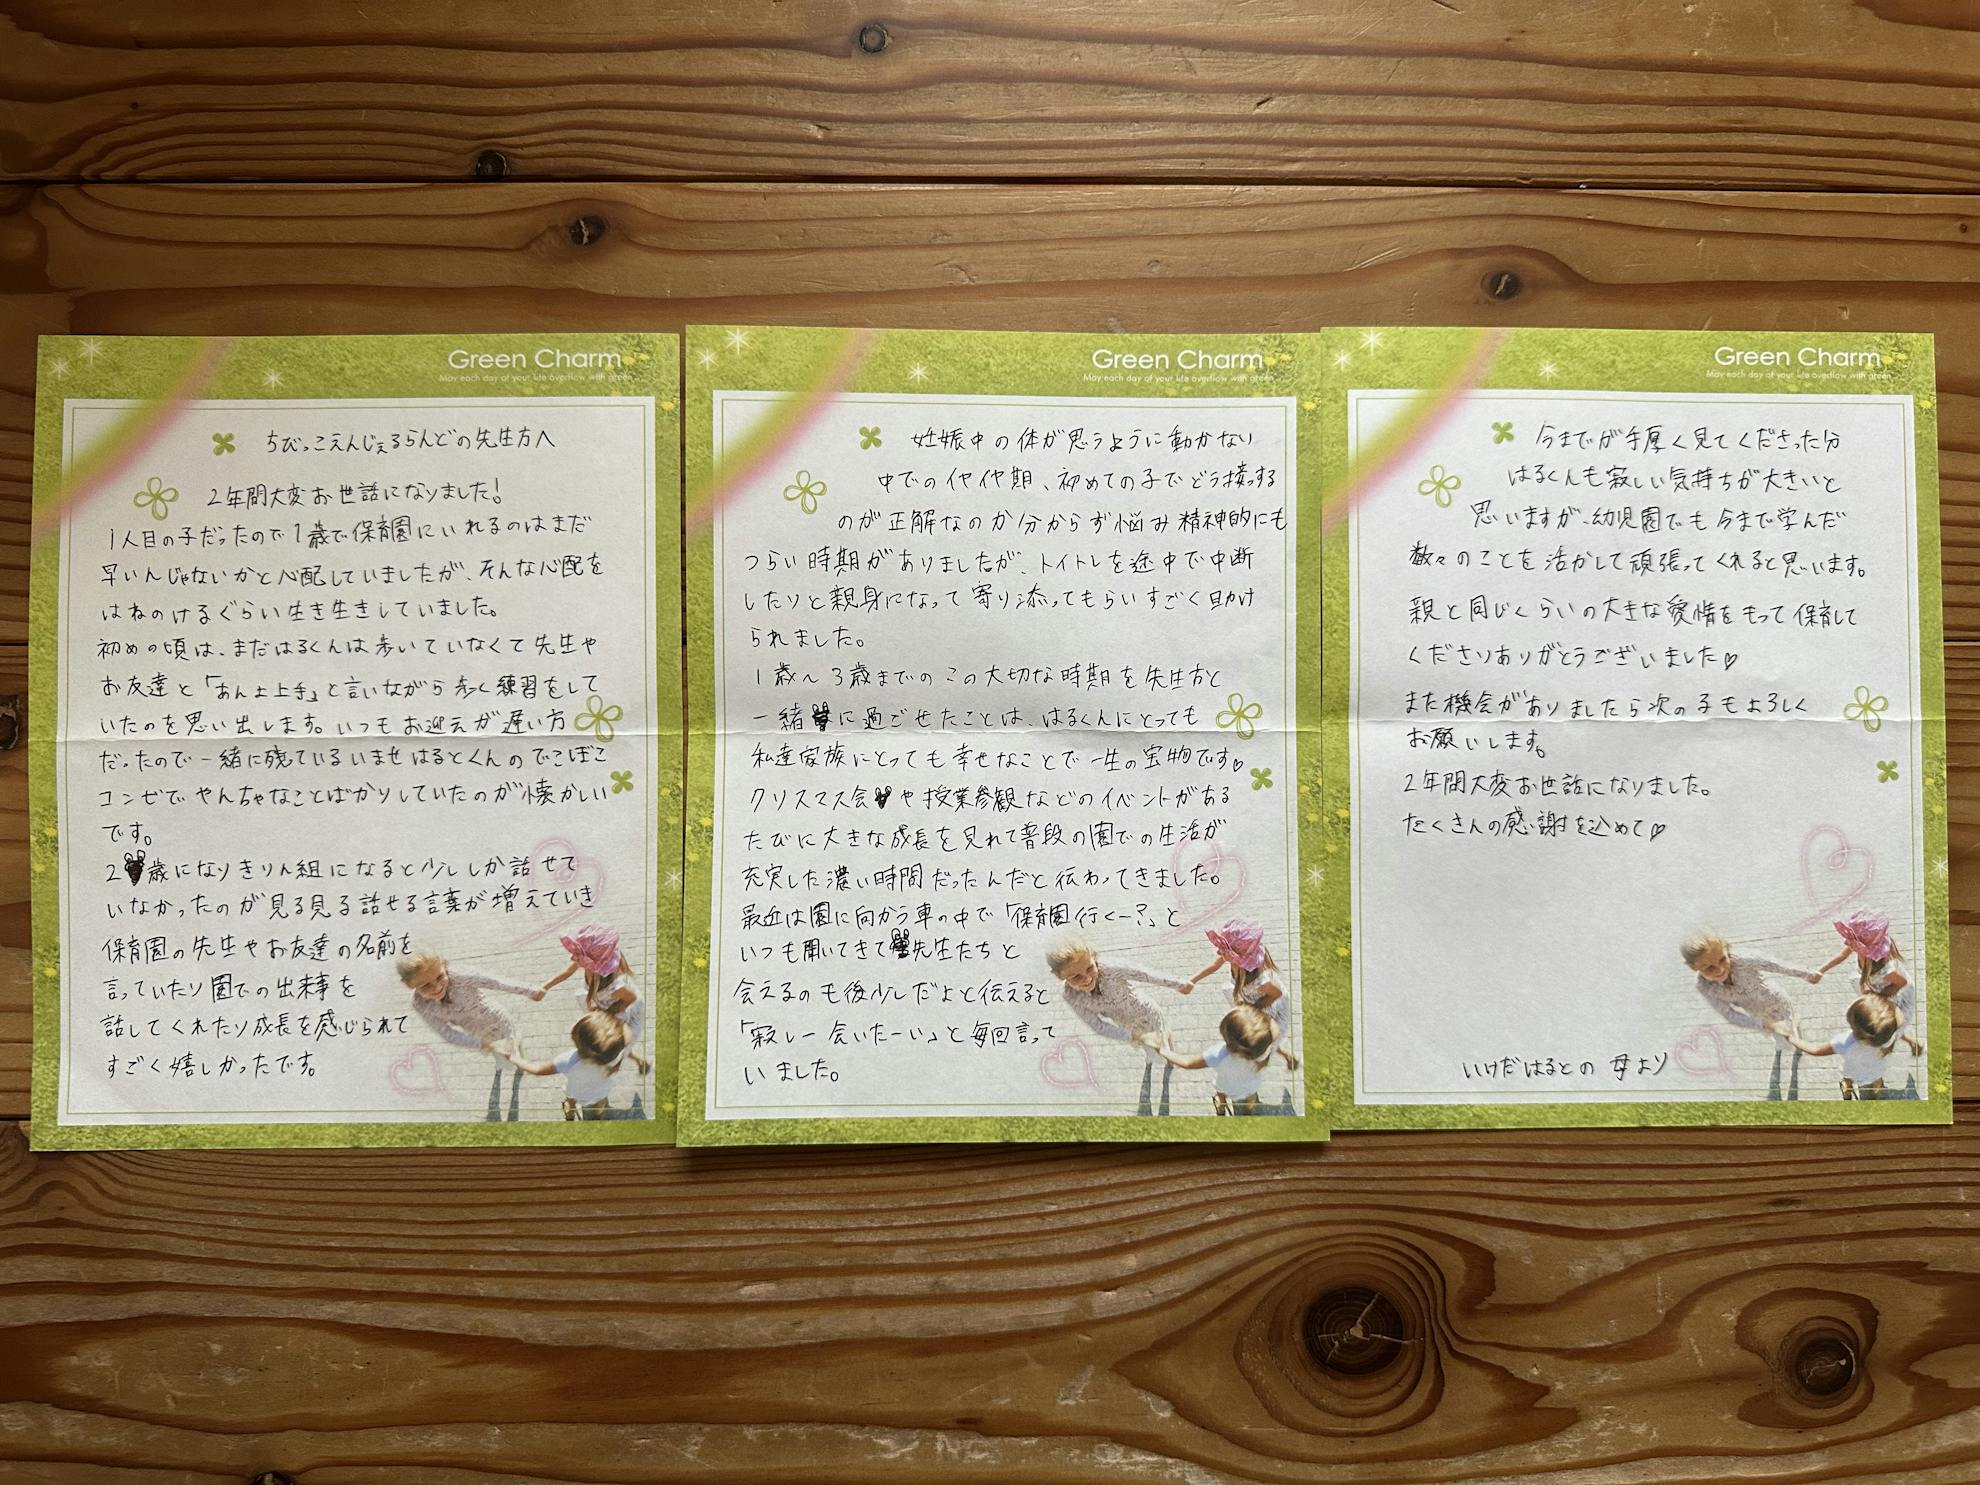 Green Charm
May each day of your life overflow with green
ちびっこえんじぇるらんどの先生方へ
2年間大変お世話になりました!
1人目の子だったので1歳で保育園にいれるのはまだ
早いんじゃないかと心配していましたが、そんな心配を
はねのけるぐらい生き生きしていました。
初めの頃は、まだはるくんは歩いていなくて先生や
お友達と「あんよ上手」と言いながら歩く練習をして
いたのを思い出します。いつもお迎えが遅い方
だったので一緒に残っているいませはるとくんのでこぼこ
コンビでやんちゃなことばかりしていたのが懐かしい
です。
2歳になりきりん組になると少ししか話せて
いなかったのが見る見る話せる言葉が増えていき
保育園の先生やお友達の名前を
言っていたり園での出来事を
話してくれたり成長を感じられて
すごく嬉しかったです。
Green Charm
May each day of your life overflow with green
妊娠中の体が思うように動かない
中でのイヤイヤ期、初めての子でどう接っする
のが正解なのか分からず悩み精神的にも
つらい時期がありましたが、トイトレを途中で中断
したりと親身になって寄り添ってもらいすごく助け
られました。
1歳〜3歳までのこの大切な時期を先生方と
一緒に過ごせたことは、はるくんにとっても
私達家族にとっても幸せなことで一生の宝物です♡
クリスマス会や授業参観などのイベントがある
たびに大きな成長を見れて普段の園での生活が
充実した濃い時間だったんだと伝わってきました。
最近は園に向かう車の中で「保育園行くー?」と
いつも聞いてきて先生たちと
会えるのも後少しだよと伝えると
「寂しー会いたーい」と毎回言って
いました。
Green Charm
May each day of your life overflow with green
今までが手厚く見てくださった分
はるくんも寂しい気持ちが大きいと
思いますが、幼児園でも今まで学んだ
数々のことを活かして頑張ってくれると思います。
親と同じくらいの大きな愛情をもって保育して
くださりありがとうございました♡
また機会がありましたら次の子もよろしく
お願いします。
2年間大変お世話になりました。
たくさんの感謝を込めて♡
いけだはるとの 母より